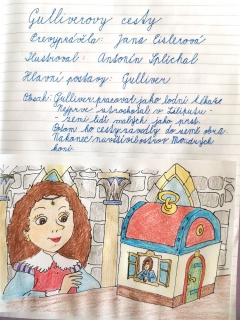 Gulliverovy cesty
Převyprávěla: Jana Eislerová
Ilustroval: Antonín Šplíchal
Hlavní postavy: Gulliver
Obsah: Gulliver pracoval jako lodní lékař
Nejprve ztroskotal v Liliputu
zemi lidí malých jako prst.
Potom ho cesty zavedly do země obrů.
Nakonec navštívil ostrov Moudrých
koní.